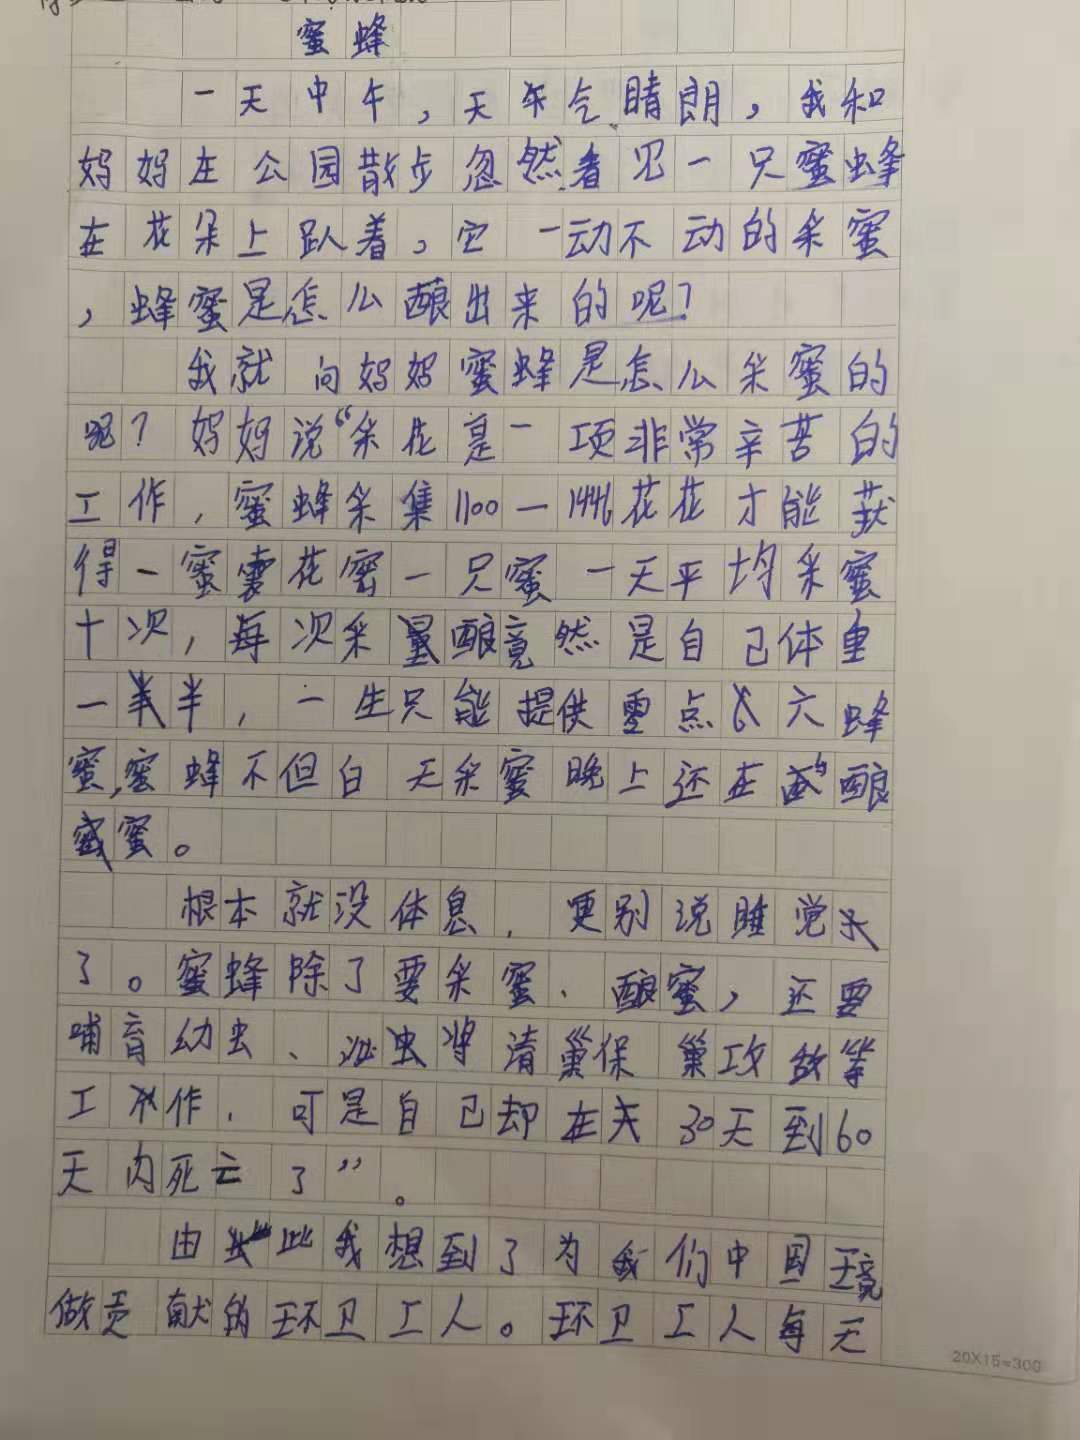 蜜蜂
一天中午，天气晴朗，我和
妈妈在公园散步忽然看见一只蜜蜂
在花朵上趴着，它一动不动的采蜜
，蜂蜜是怎么酿出来的呢？
我就问妈妈蜜蜂是怎么采蜜的
呢？妈妈说“采花是一项非常辛苦的
工作，蜜蜂采集1100一1446花花才能获
得一蜜囊花密一只蜜一天平均采蜜
十次，每次采量酿竟然是自己体重
一半，一生只能提供零点六蜂
蜜，蜜蜂不但白天采蜜晚上还在酿
蜜。
根本就没体息，更别说睡觉
了。蜜蜂除了要采蜜、酿蜜，还要
哺育幼虫、泌虫将清巢保巢攻敌等
工作，可是自己却在30天到60
天内死亡了”。
由此我想到了为我们中国环境
做贡献的环卫工人。环卫工人每天
20X15=300